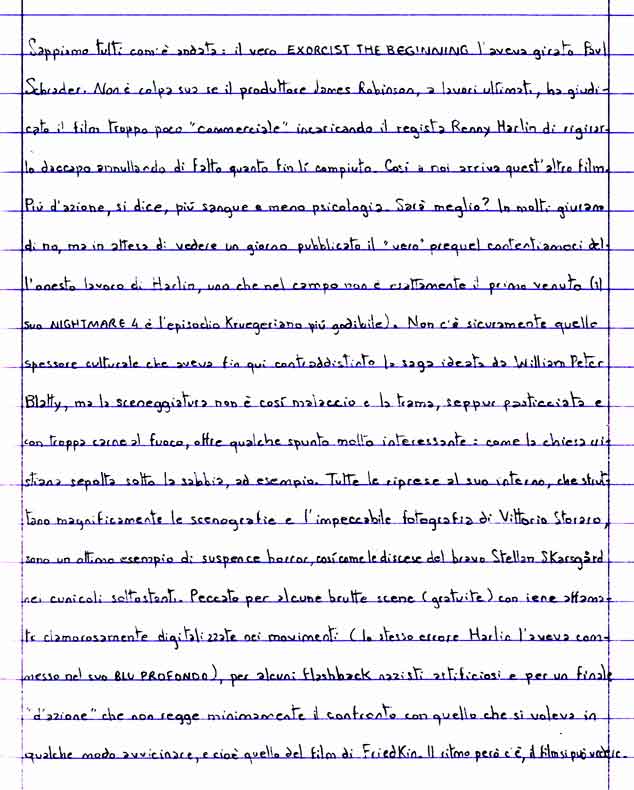 Sappiamo tutti com'è andata: il vero EXORCIST THE BEGINNING l'aveva girato Paul
Schrader. Non è colpa sua se il produttore James Robinson, a lavori ultimati, ha giudi-
cato il film troppo poco "commerciale" incaricando il regista Renny Harlin di rigirar-
lo daccapo annullando di fatto quanto fin lì compiuto. Così a noi arriva quest'altro film.
Più d'azione, si dice, più sangue e meno psicologia. Sarà meglio? In molti giurano
di no, ma in attesa di vedere un giorno pubblicato il "vero" prequel contentiamoci del-
l'onesto lavoro di Harlin, uno che nel campo non è esattamente il primo venuto (il
suo NIGHTMARE 4 è l'episodio Kruegeriano più godibile). Non c'è sicuramente quello
spessore culturale che aveva fin qui contraddistinto la saga ideata da William Peter
Blatty, ma la sceneggiatura non è così malaccio e la trama, seppur pasticciata e
con troppa carne al fuoco, offre qualche spunto molto interessante: come la chiesa cri-
stiana sepolta sotto la sabbia, ad esempio. Tutte le riprese al suo interno, che sfrut-
tano magnificamente le scenografie e l'impeccabile fotografia di Vittorio Storaro,
sono un ottimo esempio di suspence horror, così come le discese del bravo Stellan Skarsgård
nei cunicoli sottostanti. Peccato per alcune brutte scene (gratuite) con iene affama-
te clamorosamente digitalizzate nei movimenti (lo stesso errore Harlin l'aveva com-
messo nel suo BLU PROFONDO), per alcuni flashback nazisti artificiosi e per un finale
"d'azione" che non regge minimamente il confronto con quello che si voleva in
qualche modo avvicinare, e cioè quello del film di Friedkin. Il ritmo però c'è, il film si può vedere.